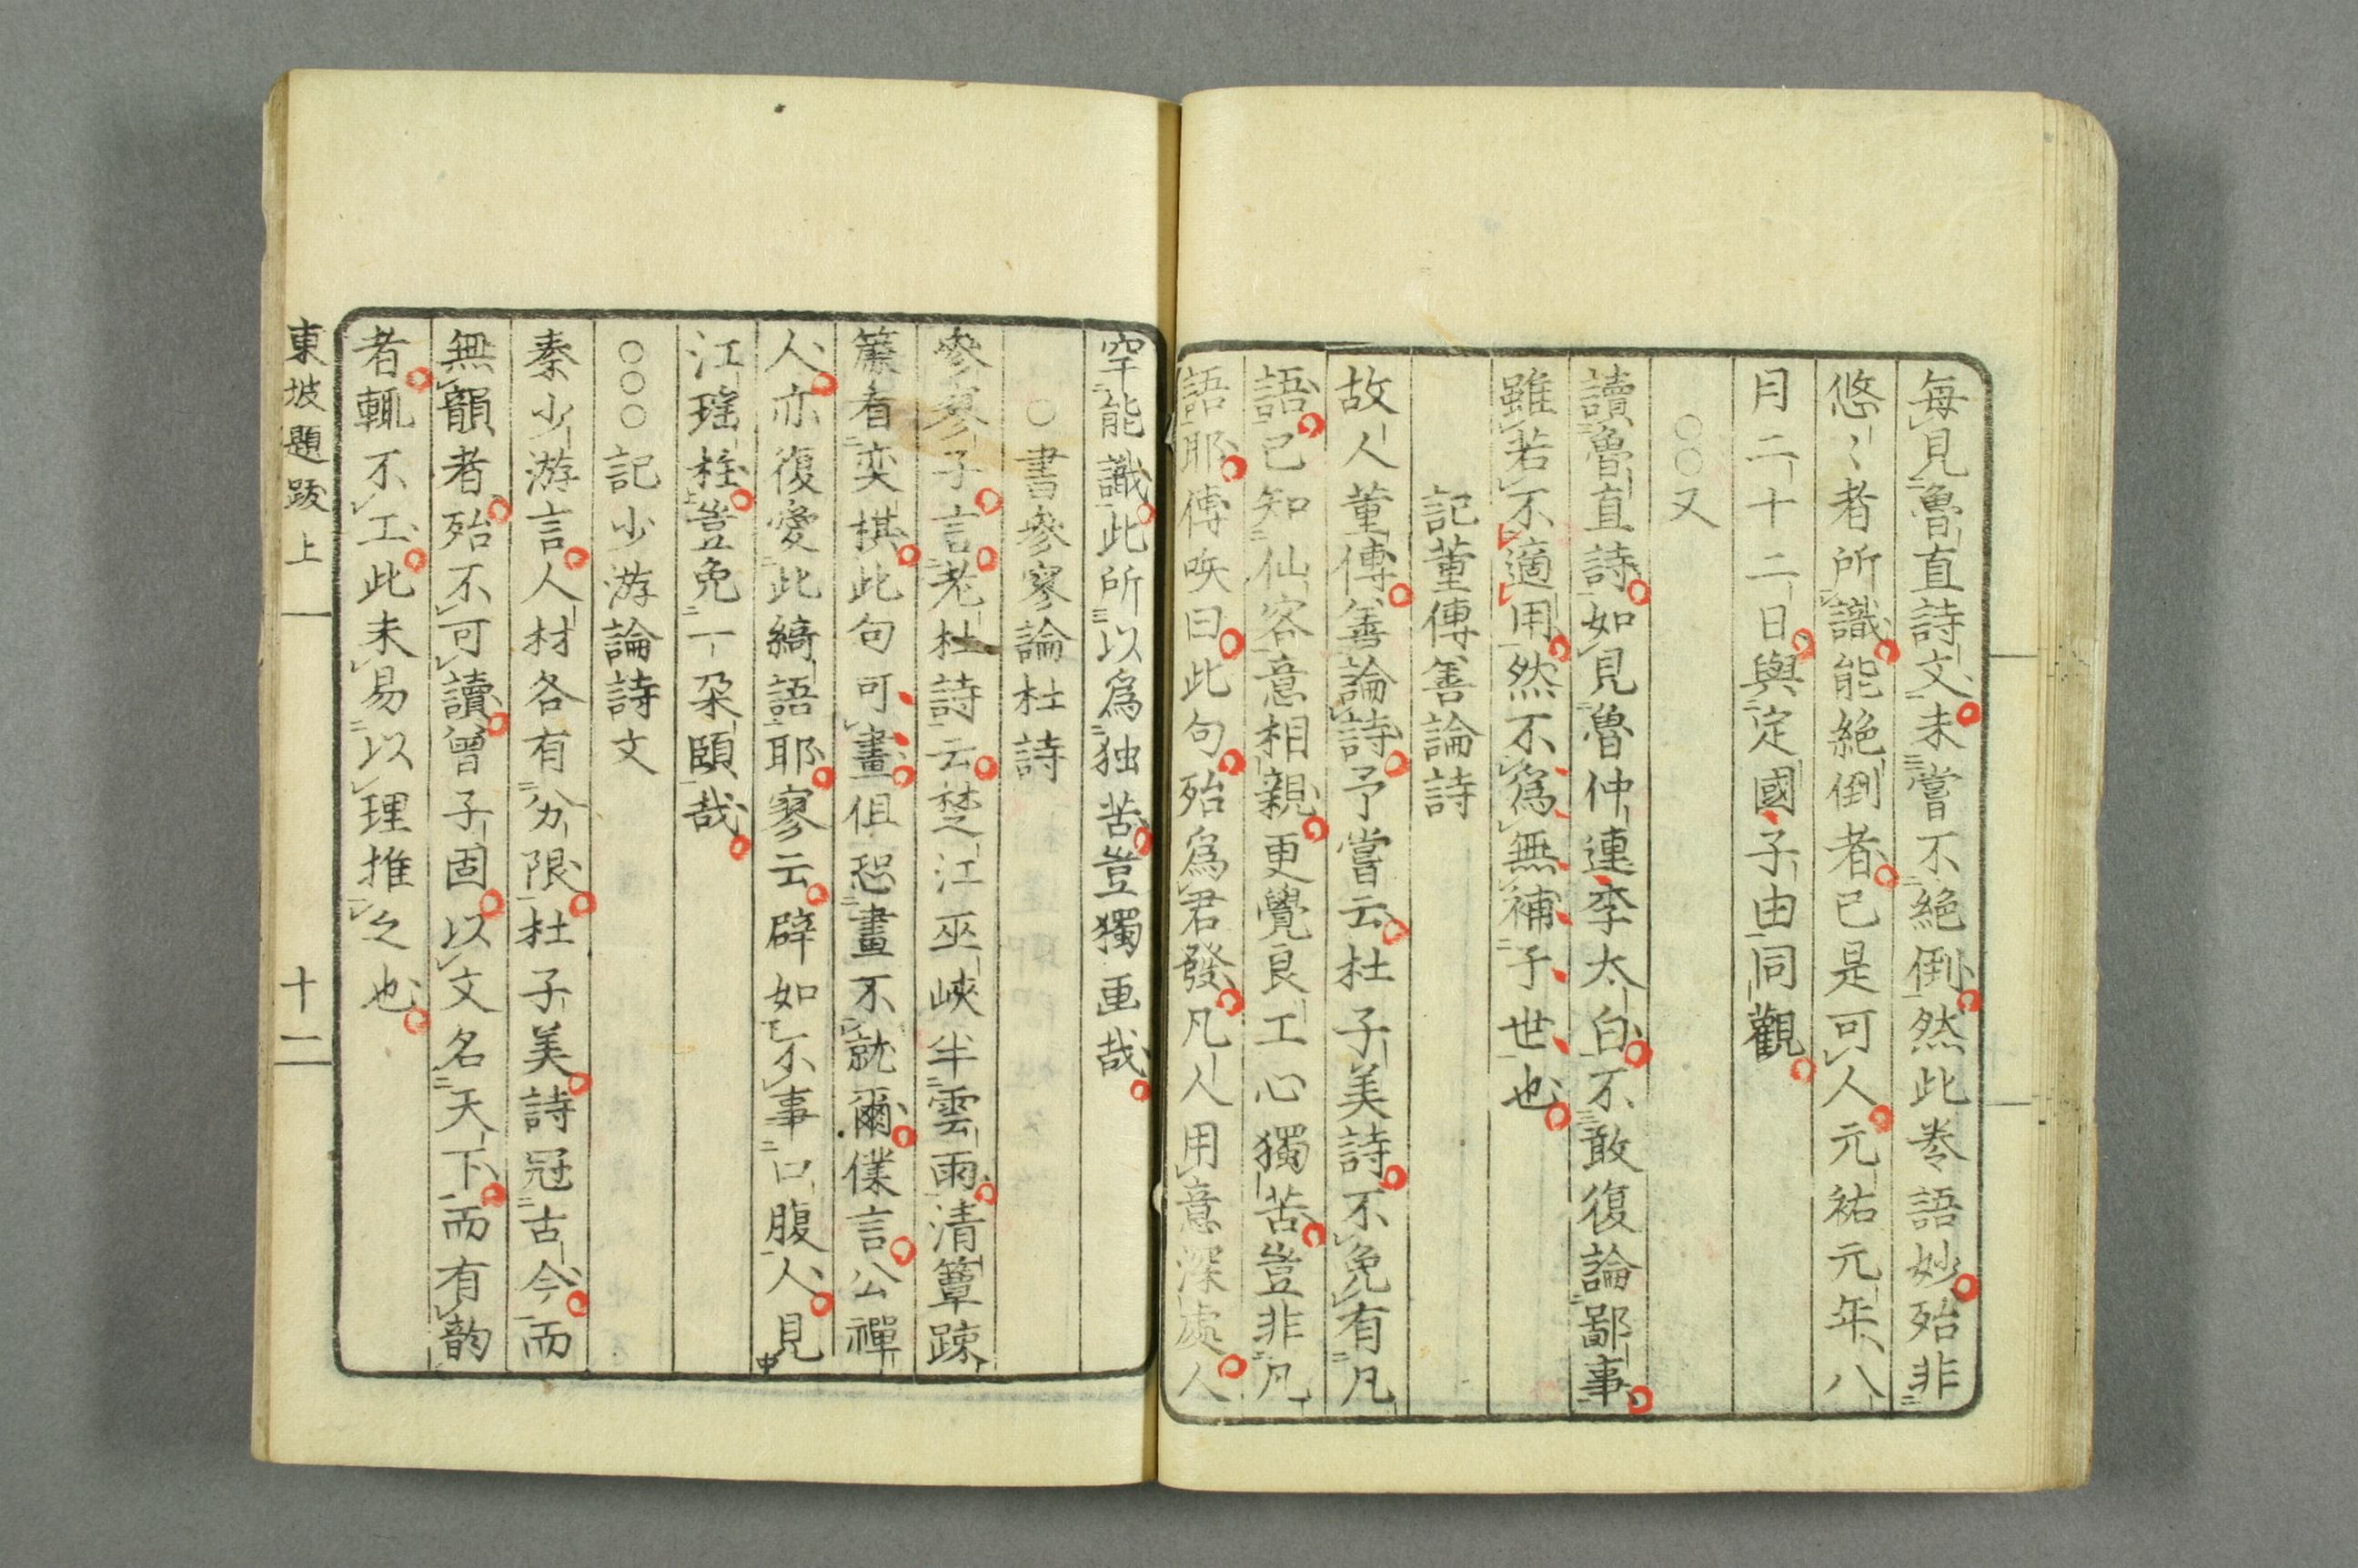 每見魯直詩文未嘗不絕倒然此卷語妙殆非
悠〻者所識能絕倒者已是可人元祐元年八
月二十二日與定國子由同觀
○○又
讀魯直詩如見魯仲連李太白不敢復論鄙事
雖若不適用然不爲無補于世也
記董傳善論詩
故人董傳善論詩予嘗云杜子美詩不免有凡
語已知仙客意相親更覺良工心獨苦豈非凡
語耶傳咲曰此句殆爲君發凡人用意深處人
罕能識此所以爲独苦豈獨画哉
○書參寥論杜詩
參寥子言老杜詩云楚江巫峽半雲雨清簟踈
簾看奕棋此句可畫但恐畫不就爾僕言公禪
人亦復愛此綺語耶寥云辟如不事口腹人見
江瑤柱豈免一朶頤哉
○○○記少游論詩文
秦少游言人材各有分限杜子美詩冠古今而
無韻者殆不可讀曾子固以文名天下而有韵
者輒不工此未易以理推之也
東坡題跋上 十二